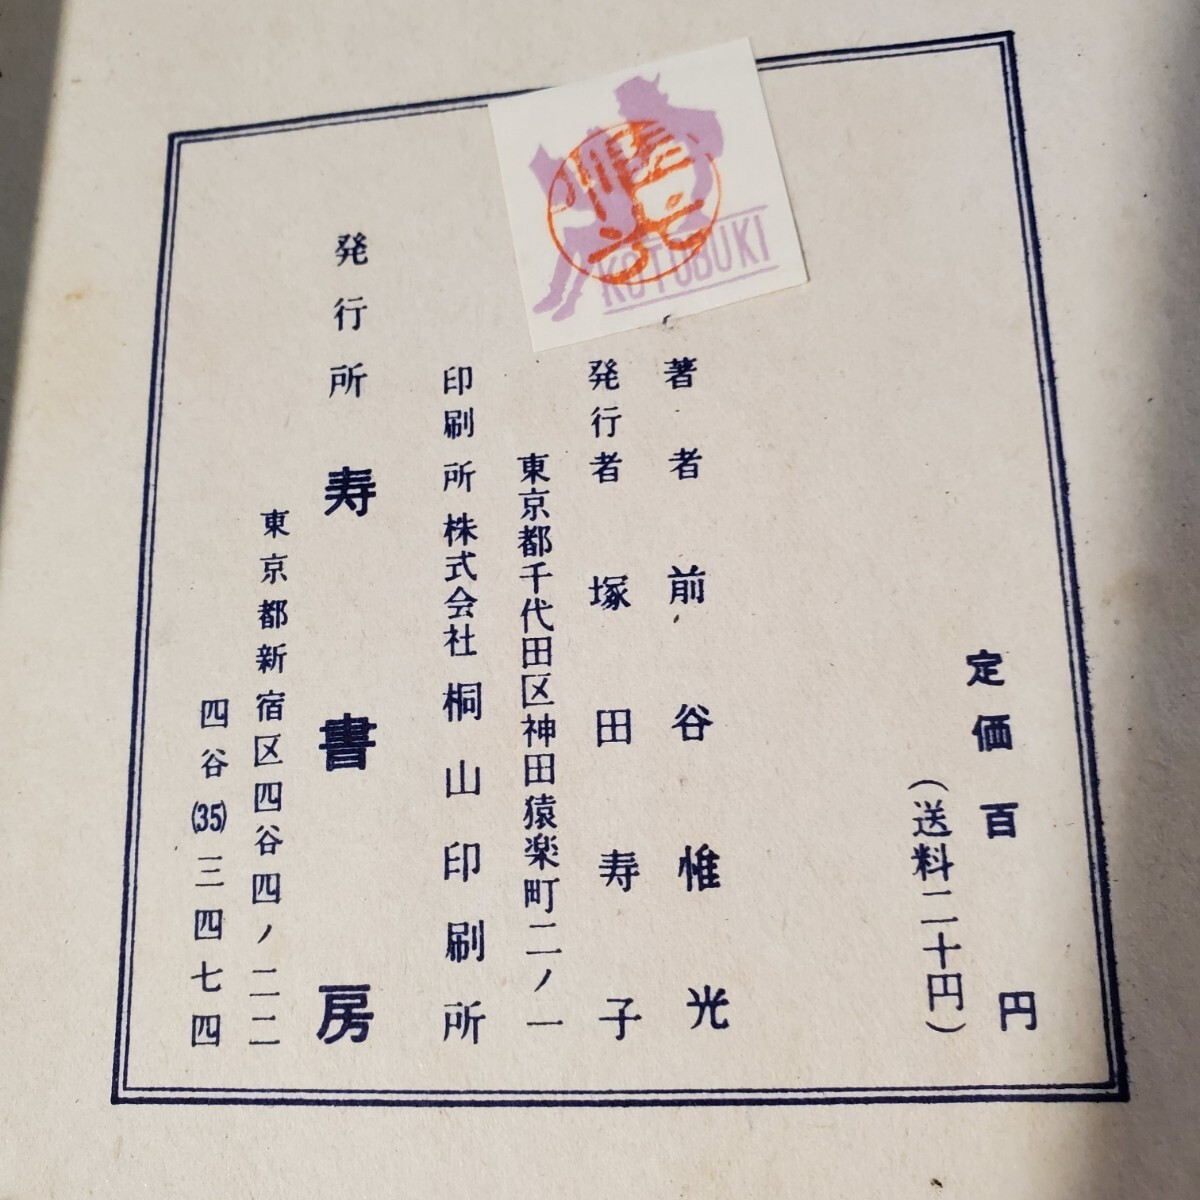 定価百円
(送料二十円)
著者 前谷惟光
発行者 塚田寿子
東京都千代田区神田猿楽町二ノ一
印刷所 株式会社 桐山印刷所
発行所 寿書房
東京都新宿区四谷四ノ二二
四谷(35)三四七四
KOTOBUKI